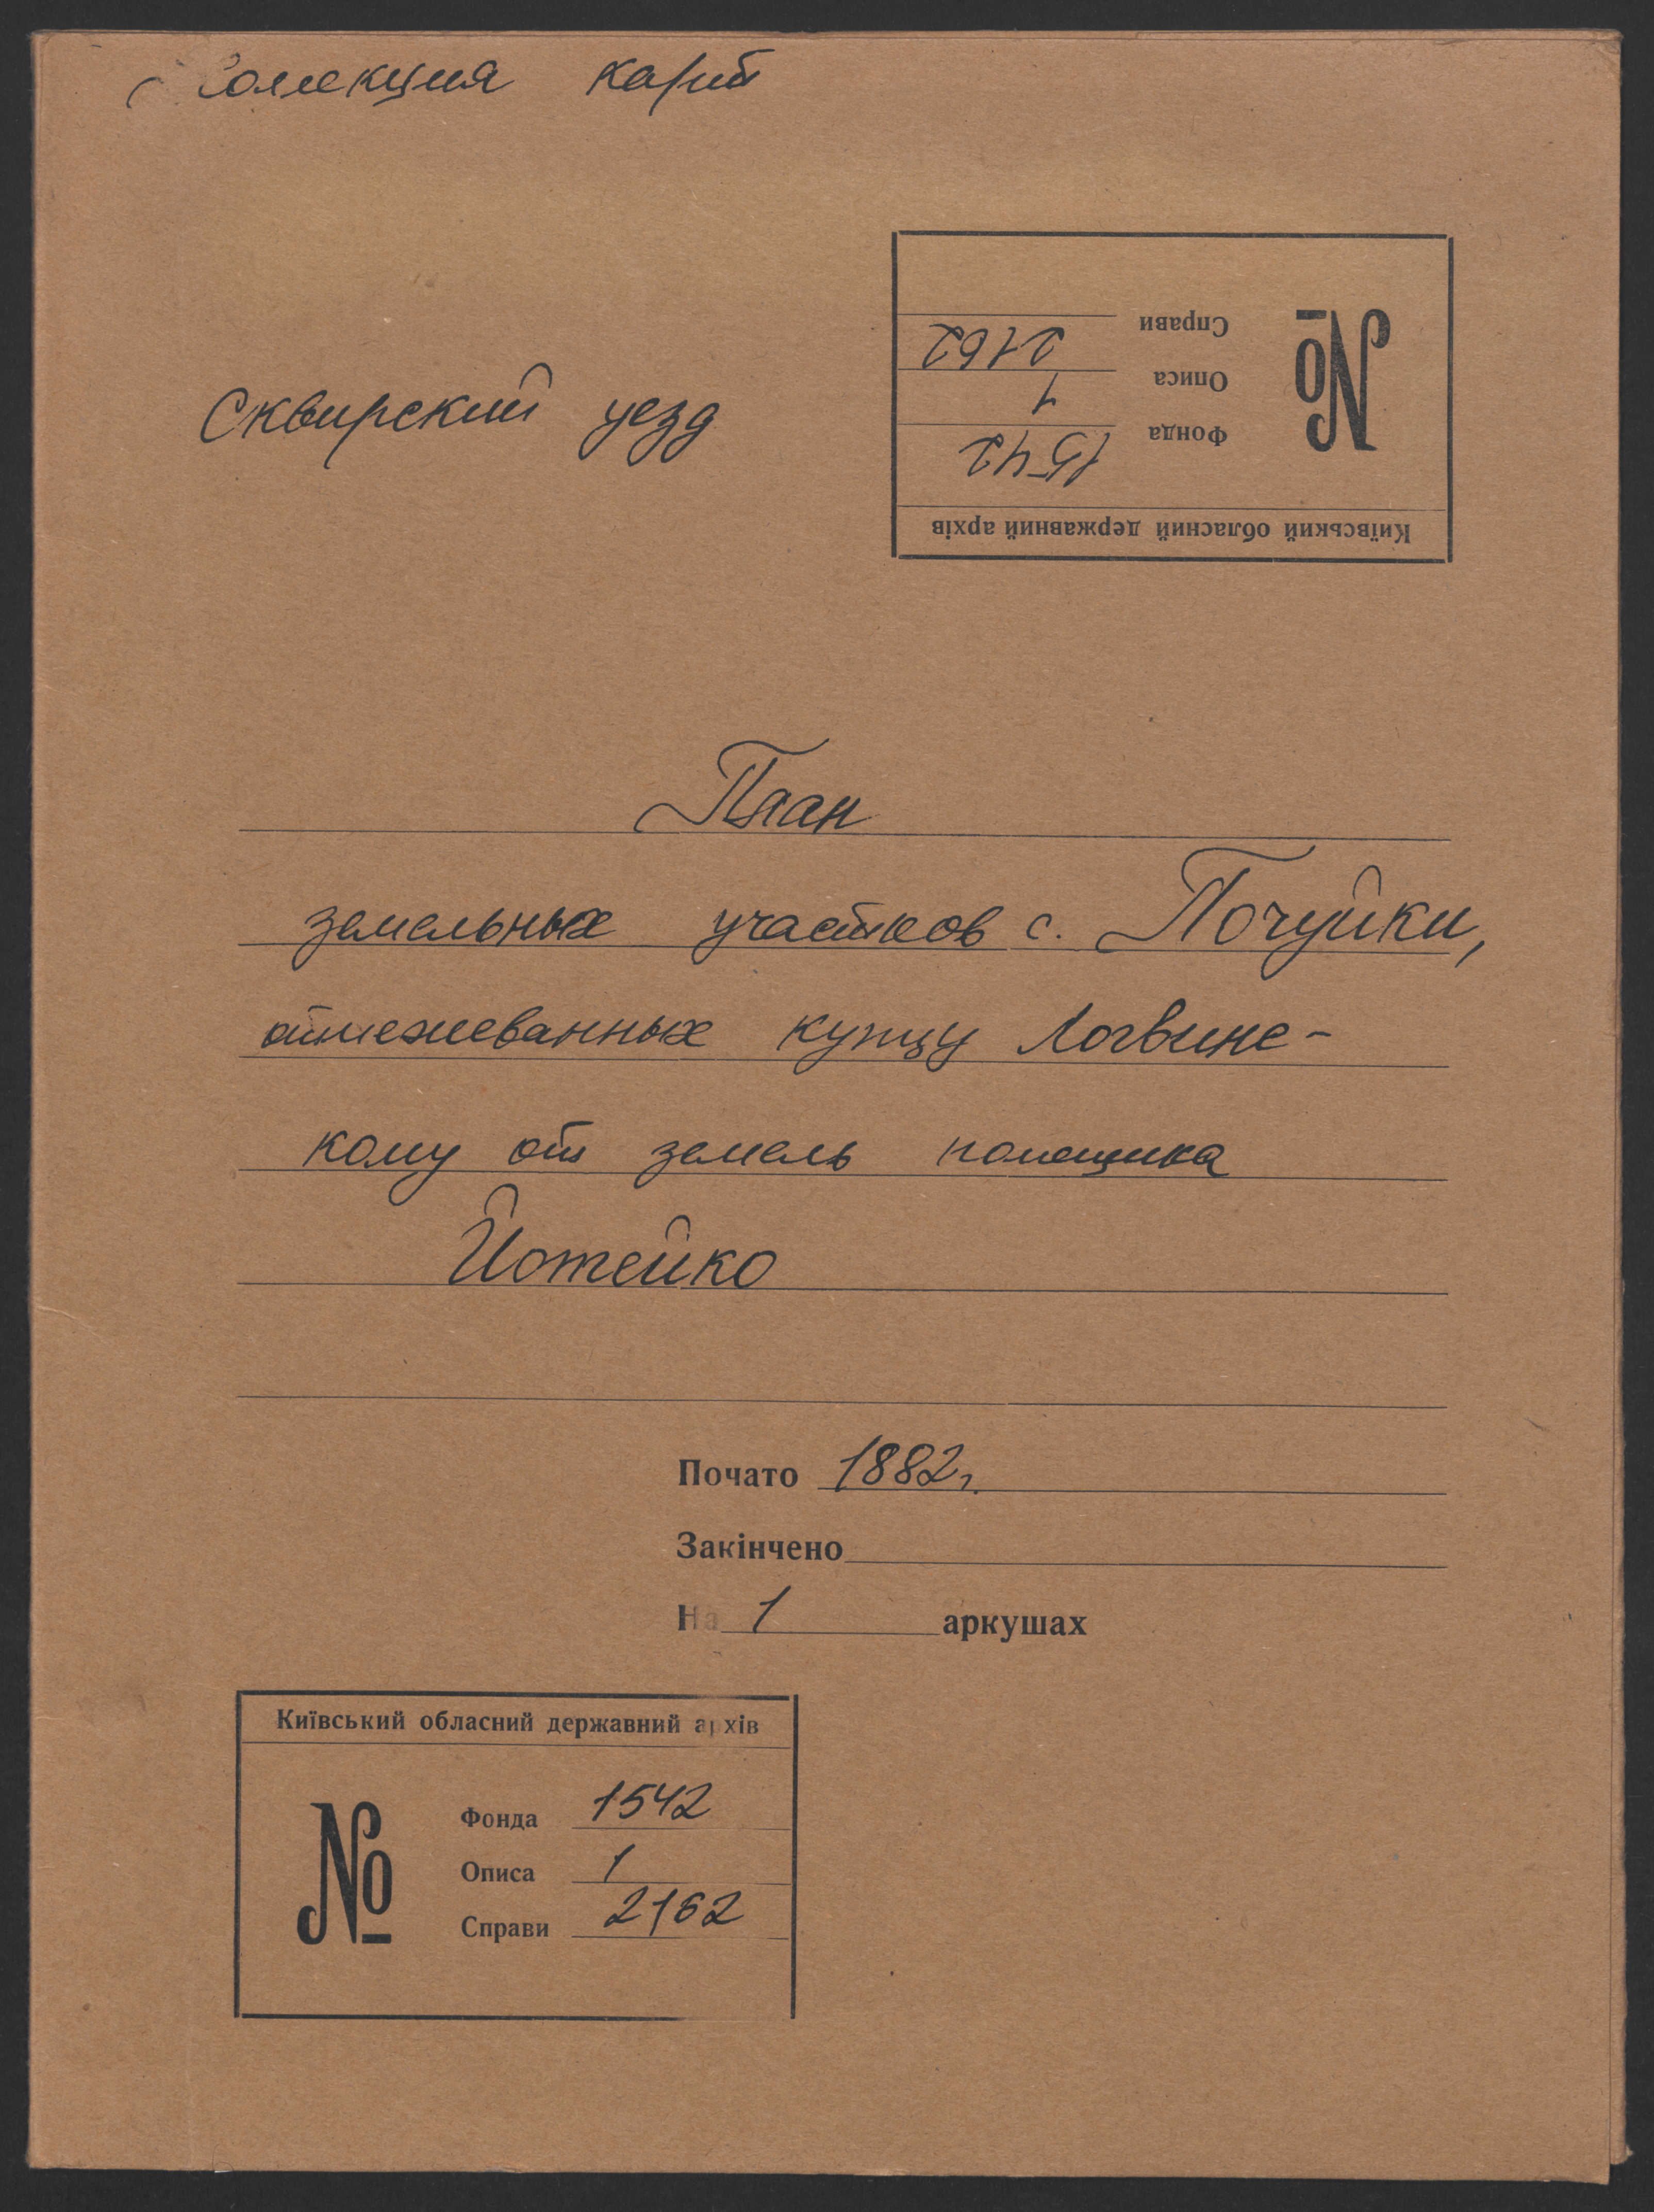 Коллекция карт
Сквирский уезд
Київський обласний державний архів
№
Фонда 1542
Описа 1
Справи 2162
План
земельных участков с. Почуйки,
отмежеванных купцу Логвинс-
кому от земель помещика
Йотейко
Почато 1882г.
Закінчено
На 1 аркушах
Київський обласний державний архів
№
Фонда 1542
Описа 1
Справи 2162